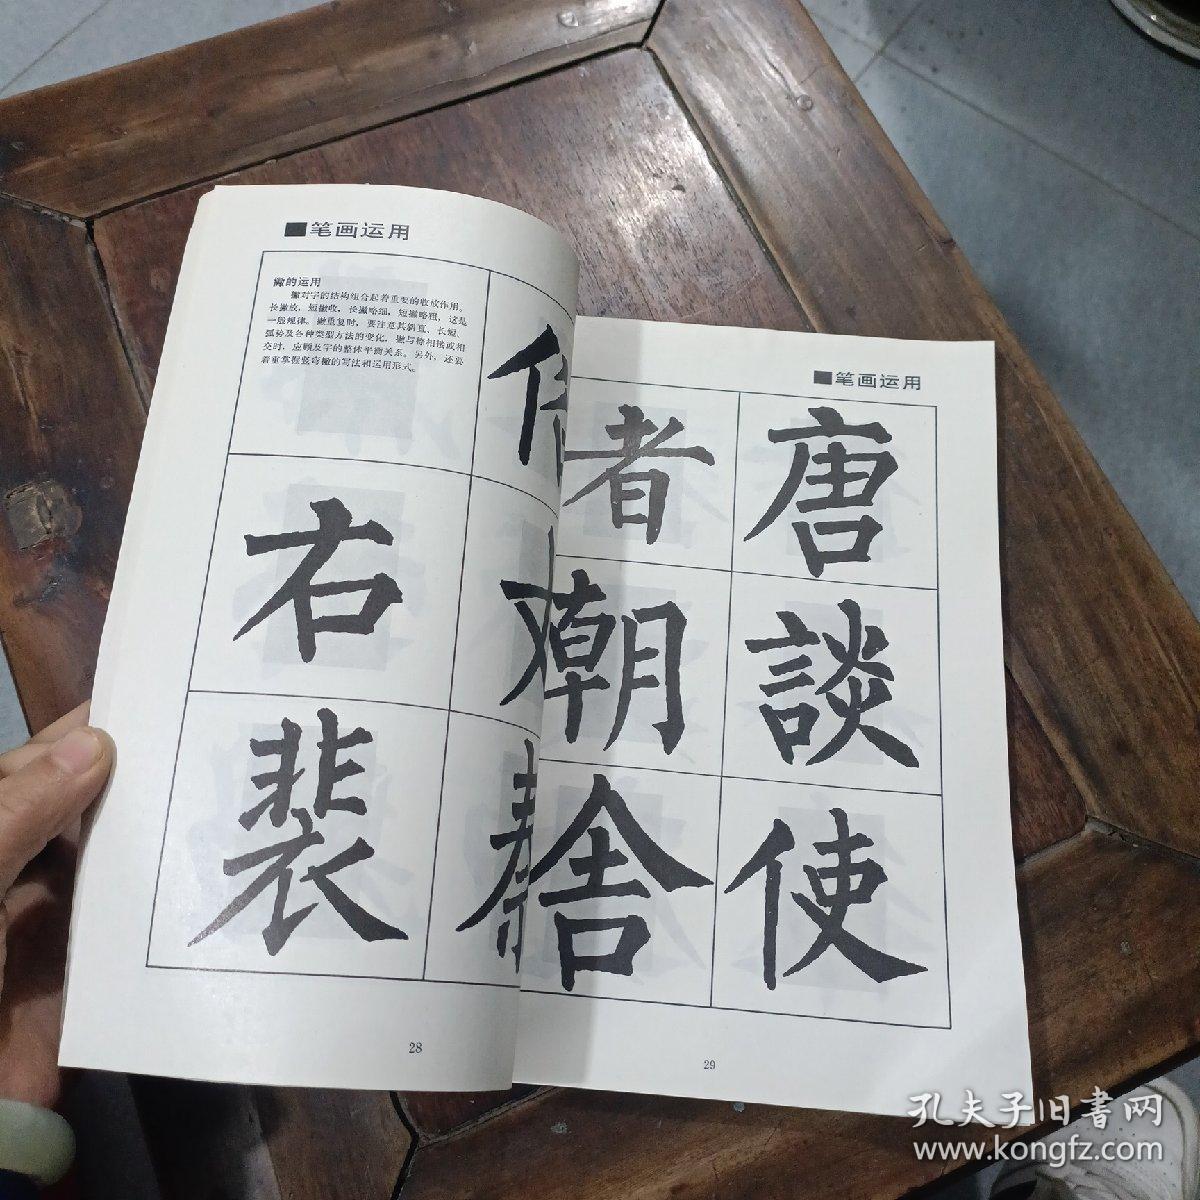 笔画运用
撇的运用
撇对字的结构组合起着重要的收放作用。
长撇放，短撇收，长撇略细，短撇略粗，这是
一般规律。撇重复时，要注意其斜直、长短、
弧势及各种类型方法的变化，撇与捺相接或相
交时，应顾及字的整体平衡关系。另外，还要
着重掌握竖弯撇的写法和运用形式。
右
裴
28
笔画运用
者 唐
潮 談
舍 使
29
孔夫子旧书网
www.kongfz.com